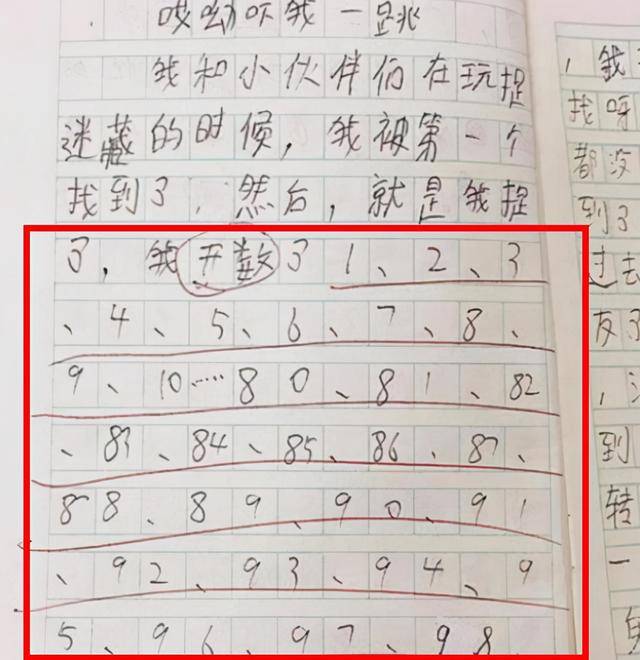 哎呦吓我一跳
我和小伙伴们在玩捉
迷藏的时候，我被第一个
找到了，然后，就是我捉
了，我开数了1、2、3
、4、5、6、7、8、
9、10……80、81、82
、83、84、85、86、87、
88、89、90、91
、92、93、94、9
5、96、97、98
，我
找呀
都没
到了
过去
友了
，
到
转
一